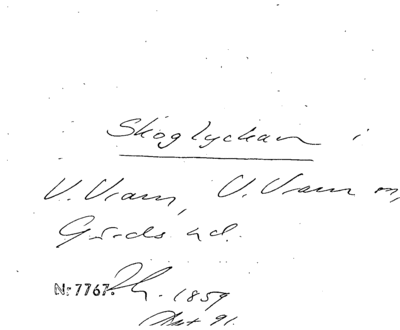 Skoglyckan i
V. Vram, V. Vram sn,
Gärds hd.
Nr 7767. 1859